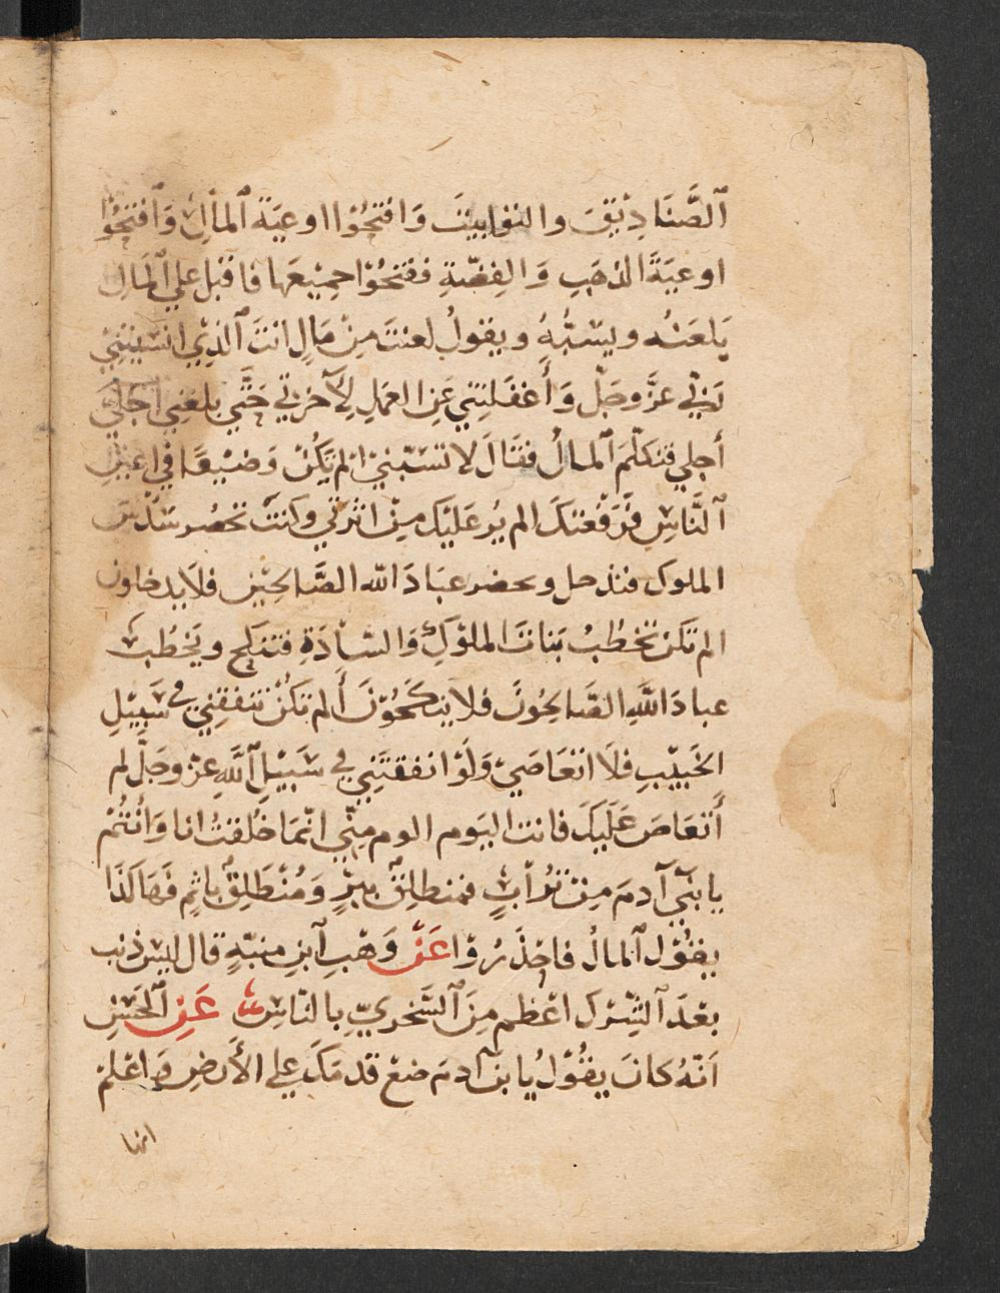 ٱلصَّنَادِيْقَ والتوابيْتَ وَافتحُوْا اوعيَة ٱلمالِ وَٱفتحُوْا
اوعيَةَ الذهَبِ وَالفِضّةِ ففتحُوْا جميْعَها فاقبل علي ٱلمَال
يَلعَنْه ويسُبُّهُ ويقولُ لعنتَ مِنْ مَالٍ انتَ ٱلذِيْ انسَيْتَنِيْ
رَبّي عزَّ وجَلّ وَأَغفَلتَنِي عَنِ العَمَلِ لِآخرَتي حَتَّي بلغنِي
أجلي فتكلّمَ ٱلمالُ فقَالَ لا تسُبّنيْ الم تَكُنْ وَضيْعًا في اعيُنِ
ٱلنَّاسِ فرَفعْتكَ الم يُر عَليْكَ مِنْ اثرَتي وكنتَ تحضُر سُدَد
الملوك فتدحل ويحضر عبَادَ الله الصَّالحِيْن فلا يدخلون
الم تكن تخطُبُ بَناتَ الملوْكِ وَالسّادَةِ فتنكح ويَخطُب
عبادَ اللهِ الصَّالحُونَ فلا ينكحُوْنَ أَلم تكُنْ تنفقنِي في سَبيْلِ
الخَبيْبِ فلَا اتعَاصَيْ وَلَوْ انفقتَنِي في سَبيْلِ ٱللهِ عزّ وجَلّ لم
أَتعَاصَ عَلَيكَ فانت اليَوم الوم مِنّي انّمَا خُلقتُ انا وَأَنتُمْ
يا بَنيْ آدمَ مِن تُرابٍ فمنطلِقٌ ببِرٍّ وَمُنْطَلِقٌ باثمٍ فَهَاكَذَا
يقُوْل ٱلمالُ فاحْذَرُوْا عَنْ وَهْبِ ٱبنِ منبّهٍ قال ليسَ ذنب
بعْدَ ٱلشِّرْك اعْظم مِنَ ٱلسّخريِّ بِالنّاسِ عَنِ ٱلحَسَنِ
اَنّهُ كانَ يقُوْلُ يا بن آدمَ ضعْ قدمَكَ علي الأرضِ وَاعْلمْ
انها